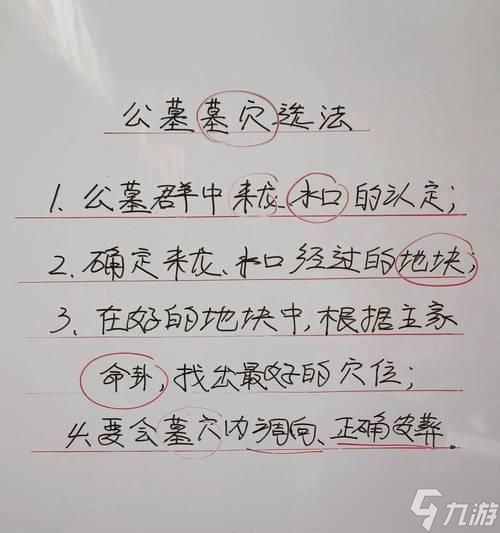 公墓墓穴选法
1、公墓群中来龙、水口的认定;
2、确定来龙、水口经过的地块;
3、在好的地块中,根据主家
命卦,找出最好的穴位;
4、要会墓穴内调向、正确安葬。
九游